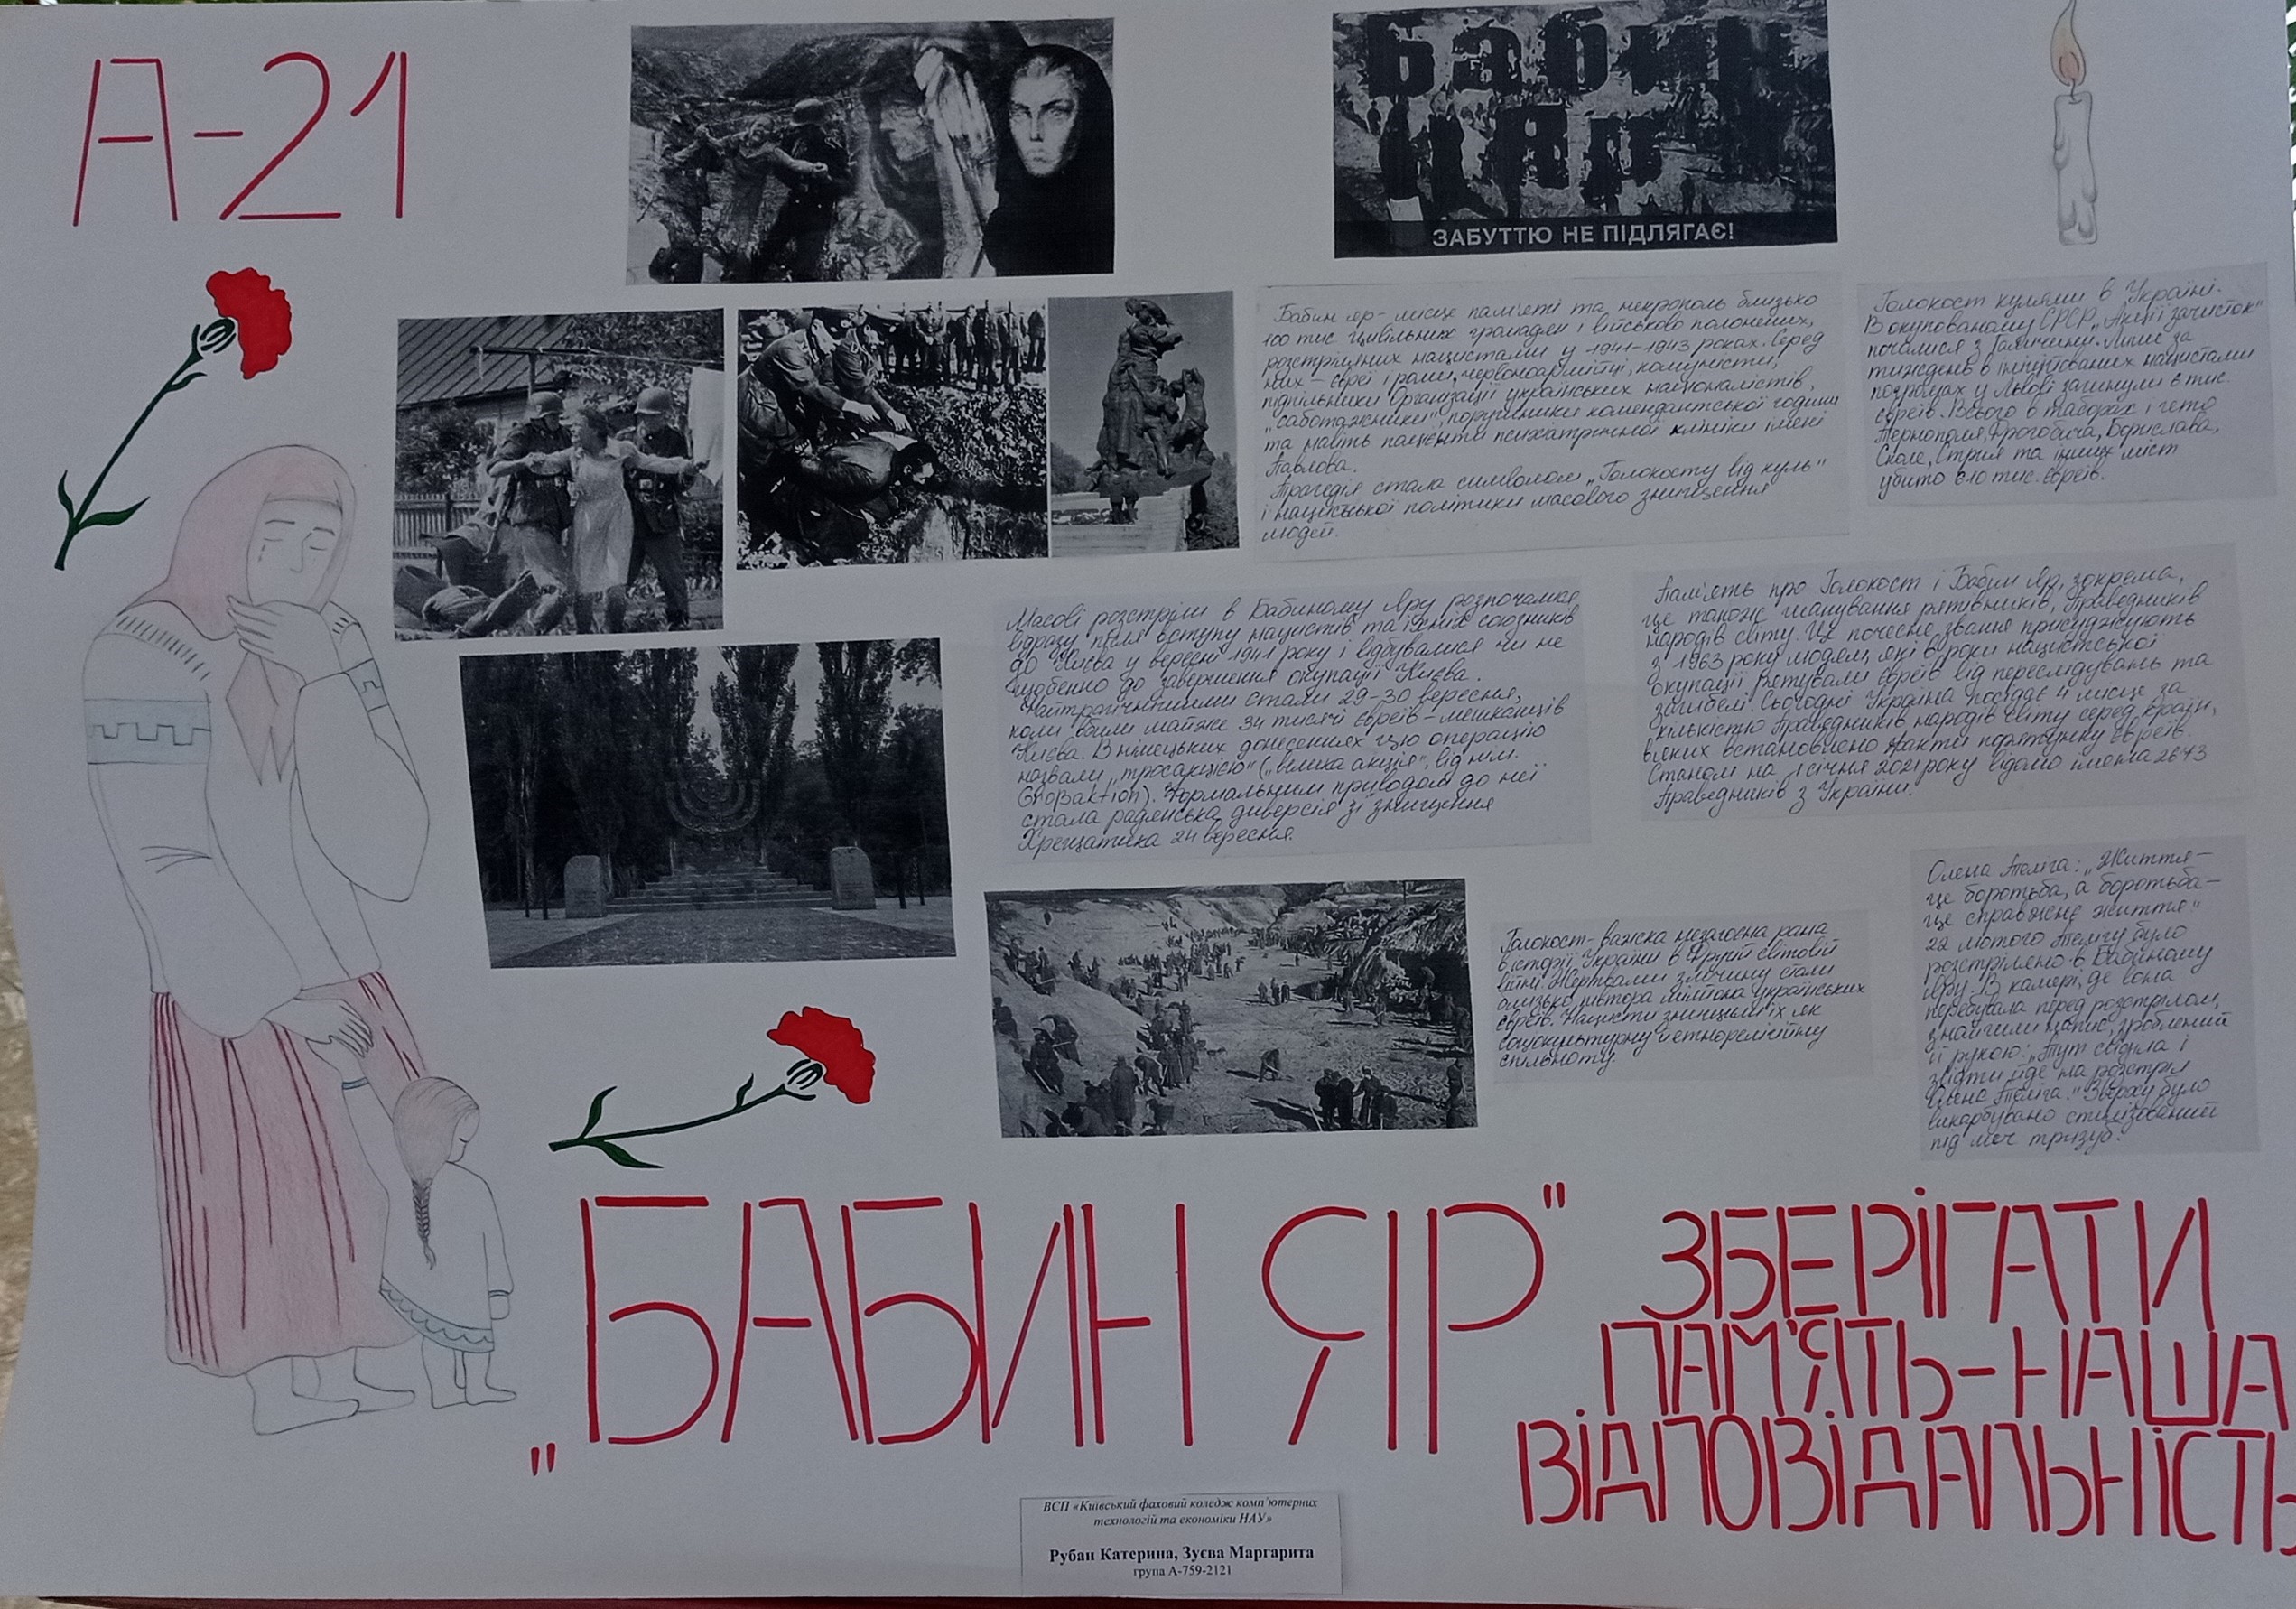 А-21
Бабин
Яр
ЗАБУТТЮ НЕ ПІДЛЯГАЄ!
Бабин Яр - місце пам'яті та некрополь близько
100 тис цивільних громадян і військово полонених,
розстріляних нацистами у 1941-1943 роках. Серед
них - євреї і роми, червоноармійці, комуністи,
підпільники Організації українських націоналістів,
„саботажники", порушники комендантської години
та навіть пацієнти психіатричної клініки імені
Павлова.
Трагедія стала символом „Голокосту від куль"
і нацистської політики масового знищення
людей.
Голокост кулями в Україні.
В окупованому СРСР „Акції зачисток"
почалися з Галичини. Лише за
тиждень в ініційованих нацистами
погромах у Львові загинули 6 тис.
євреїв. Всього в таборах і гето
Тернополя, Дрогобича, Борислава,
Сколе, Стрия та інших міст
убито 610 тис. євреїв.
Масові розстріли в Бабиному Яру розпочалися
відразу після вступу нацистів та їхніх союзників
до Києва у вересні 1941 року і відбувалися чи не
щоденно до завершення окупації Києва.
Найтрагічнішими стали 29-30 вересня,
коли вбили майже 34 тисячі євреїв - мешканців
Києва. В німецьких донесеннях цю операцію
назвали („велика акція", від нім.
Großaktion). Формальним приводом до неї
стала радянська диверсія зі знищення
Хрещатика 24 вересня.
Пам'ять про Голокост і Бабин Яр, зокрема,
це також шанування рятівників, Праведників
народів світу. Це почесне звання присуджують
з 1963 року людям, які в роки нацистської
окупації рятували євреїв від переслідувань та
загибелі. Сьогодні Україна посідає 4 місце за
кількістю Праведників народів світу серед країн,
в яких встановлено факти порятунку євреїв.
Станом на 1 січня 2021 року відомо імена 2673
Праведників з України.
Олена Теліга: „Життя -
це боротьба, а боротьба -
це справжнє життя"
22 лютого Телігу було
розстріляно в Бабиному
Яру. В камері, де вона
перебувала перед розстрілом,
знайшли напис, зроблений
її рукою: „Тут сиділа і
звідти йде на розстріл
Олена Теліга." Зверху було
викарбувано стилізований
під меч тризуб.
Голокост - важка незагоєна рана
в історії України в Другій світовій
війні. Жертвами злочину стали
близько півтора мільйона українських
євреїв. Нацисти знищили їх як
соціокультурну й етнорелігійну
спільноту.
„БАБИН ЯР"
ЗБЕРІГАТИ
ПАМ'ЯТЬ - НАША
ВІДПОВІДАЛЬНІСТЬ
ВСП «Київський фаховий коледж комп'ютерних
технологій та економіки НАУ»
Рубан Катерина, Зуєва Маргарита
група А-759-2121